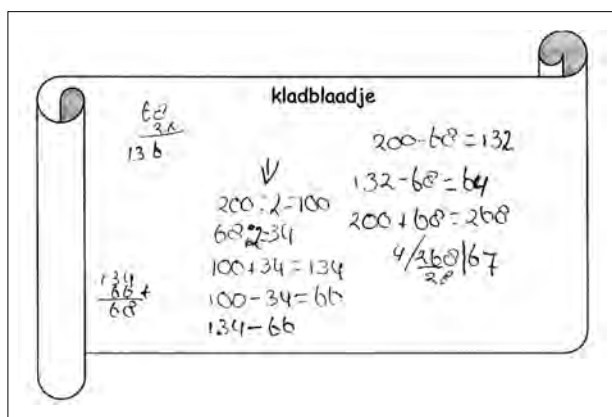 kladblaadje
68
2x
136
200 : 2 = 100
68 : 2 = 34
100 + 34 = 134
100 - 34 = 66
134 - 66
134
66 +
68
200 - 68 = 132
132 - 68 = 64
200 + 68 = 268
4/268|67
28